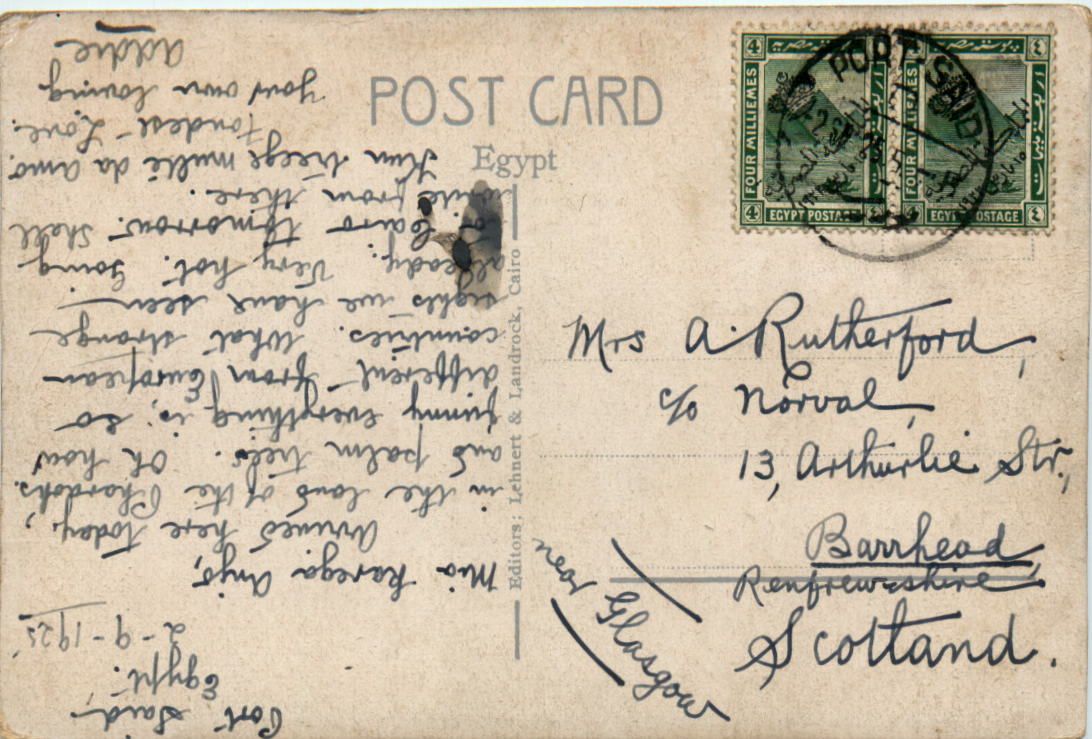 POST CARD
Egypt
Editors: Lehnert & Landrock, Cairo
Port Said,
Egypt.
2-9-1925
Mia Karega Anjo,
Arrived here today,
in the land of the Pharaohs.
and palm trees. Oh how
funny everything is, so
different from European
countries. What strange
sights we have seen
already. Very hot. Going
to Cairo tomorrow. Shall
write from there.
Kun treege multe da amo.
Fondest Love.
Your own loving
Addie
4 4
FOUR MILLIEMES
EGYPT POSTAGE
4 4
FOUR MILLIEMES
EGYPT POSTAGE
PORT-SAID
Mrs A. Rutherford,
c/o Norval,
13, Arthurlie Str.,
Barrhead,
Renfrewshire
Scotland.
near
Glasgow